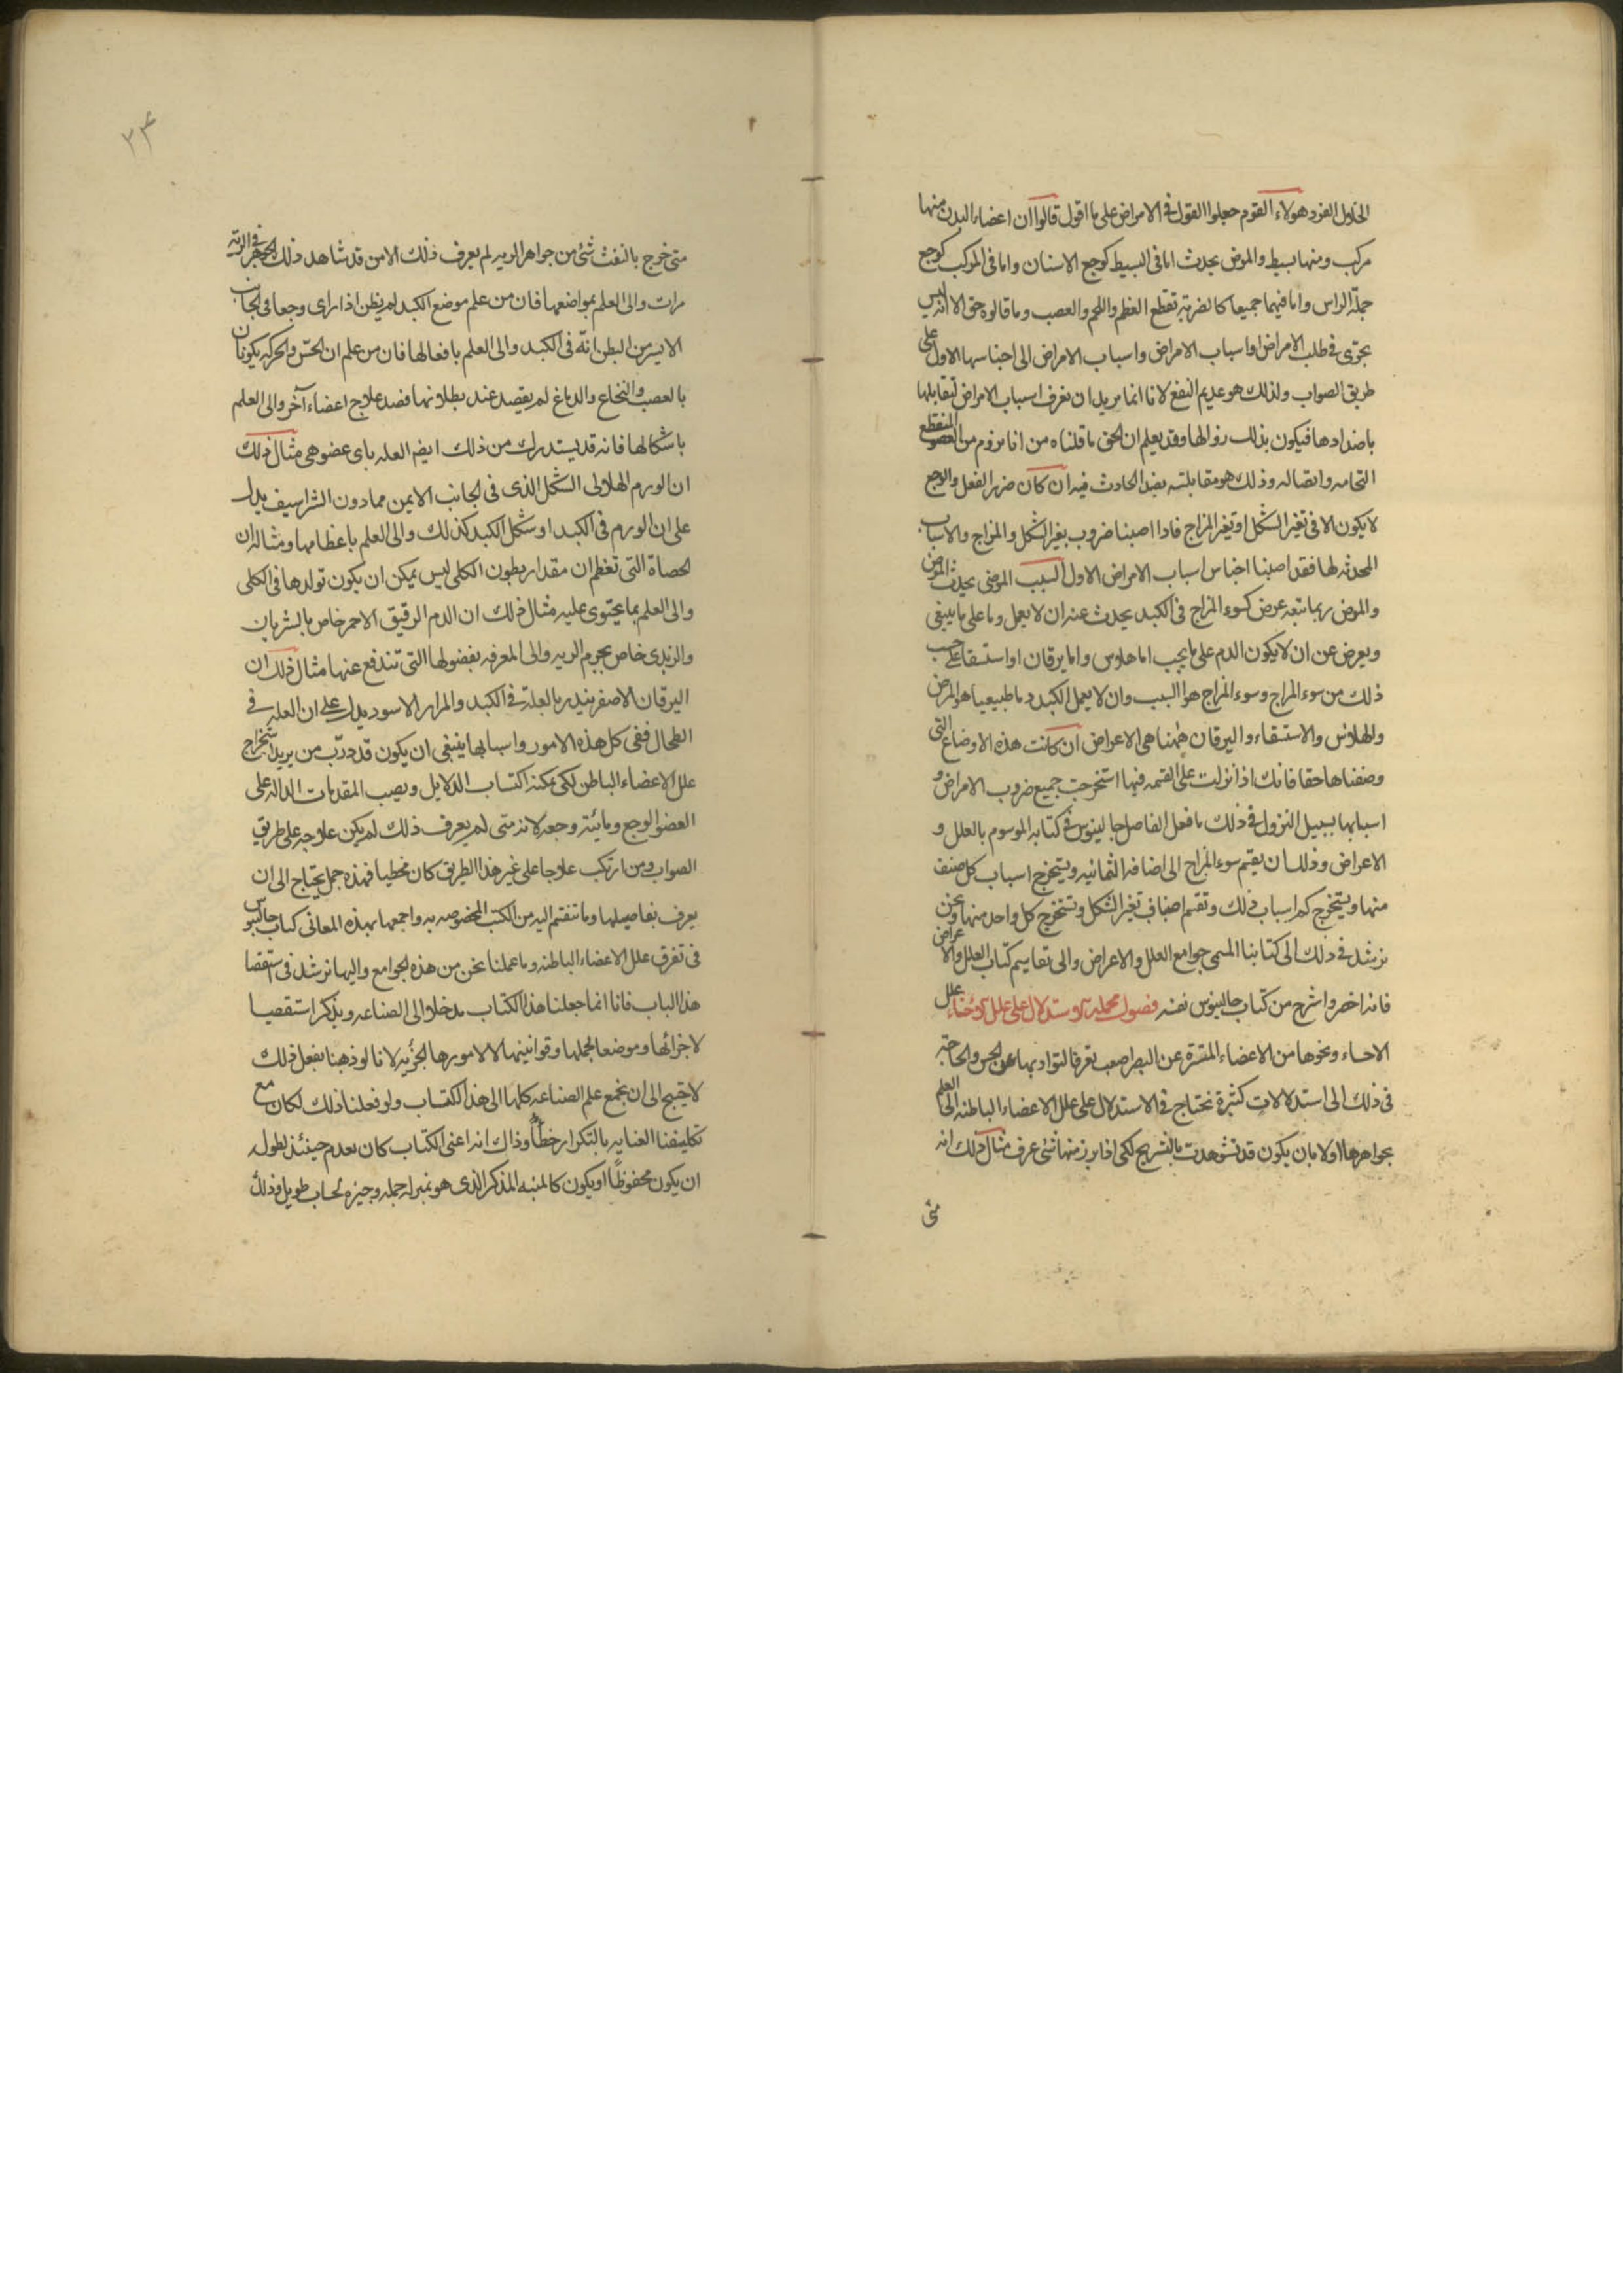 الخلول الفرد هولاء القوم جعلوا القول فى الامراض على ما اقول قالوا ان اعضاء البدن منها
مركب ومنها بسيط والمرض يحدث اما فى البسيط كوجع الاسنان واما فى المركب كوجع
جملة الراس واما فيهما جميعا كالضربة تقطع العظم واللحم والعصب وما قالوه حق الا انه ليس
يجرى فى طلب الامراض او اسباب الامراض واسباب الامراض الى اجناسها الاول على
طريق الصواب ولذلك هو عديم النفع لانا انما نريد ان نعرف اسباب الامراض لنقابلها
باضدادها فيكون بذلك زوالها وقد يعلم ان الحق ما قلناه من انا نروم من العضو المنقطع
التحامه واتصاله وذلك هو مقابلته بضد الحادث فيه ان كان ضرر الفعل والوجع
لا يكون الا فى تغير الشكل او تغير المزاج فاذا اصبنا ضروب تغير الشكل والمزاج والاسباب
المحدثه لها فقد اصبنا اجناس اسباب الامراض الاول السبب المرضى يحدث المرض
والمرض ربما تبعه عرض كسوء المزاج فى الكبد يحدث عنه ان لا يعمل وما على ما ينبغى
ويعرض عن ان لا يكون الدم على ما يجب اما هلاوس واما يرقان او استسقا على حسب
ذلك من سوء المزاج وسوء المزاج هو السبب وان لا يعمل الكبد دما طبيعيا هو المرض
والهلاوس والاستسقاء واليرقان ههنا هى الاعراض ان كانت هذه الاوضاع التى
وضفناها حقا فانك اذا نزلت على القسمه فيها استخرجت جميع ضروب الامراض و
اسبابها بسبيل النزول فى ذلك ما فعل الفاصل جالينوس فى كتابه الموسوم بالعلل و
الاعراض وذلك ان يقسم سوء المزاج الى اضافه الثمانيه ويستخرج اسباب كل صنف
منها ويستخرج كم اسباب ذلك وتقسم اصناف تغير الشكل وتستخرج كل واحد منها ونحن
نرشد فى ذلك الى كتابنا المسمى جوامع العلل والاعراض والى تقاسيم كتاب العلل والاعراض
فانه اخصر واشرح من كتاب جالينوس نفسه فصول مجمله لاستدلال على علل الاحشاء علل
الاحساء ونحوها من الاعضاء المستترة عن البصر اصعب تعرفا لتواريها عن الحس والحاجة
فى ذلك الى استدلالات كثيرة نحتاج فى الاستدلال على علل الاعضاء الباطنه الى العلم
بجواهرها اولا بان يكون قد تشوهدت بالتشريح لكى اذا برز منها شى عرف مثال ذلك انه
متى
٢٣
متى خرج بالنفث شئ من جواهر الريه لم يعرف ذلك الا من قد شاهد ذلك الجوهر فى الريه
مرات والى العلم بمواضعها فان من علم موضع الكبد لم يظن اذا راى وجعا فى الجانب
الايسر من البطن انّه فى الكبد والى العلم بافعالها فان من علم ان الحس والحركه يكونان
بالعصب والنخاع والدماغ لم يقصد عند بطلانها قصد علاج اعضاء آخر والى العلم
باشكالها فانه قد يستدرك من ذلك ايضا العله باى عضو هى مثال ذلك
ان الورم الهلالى الشكل الذى فى الجانب الايمن مما دون الشراسيف يدل
على ان الورم فى الكبد او شكل الكبد كذلك والى العلم باعظامها ومثاله ان
الحصاة التى تعظم ان مقدار بطون الكلى ليس يمكن ان يكون تولدها فى الكلى
والى العلم بما يحتوى عليه مثال ذلك ان الدم الرقيق الاحمر خاص بالشريان
والزبدى خاص بجرم الريه والى المعرفه بفضولها التى تندفع عنها مثال ذلك ان
اليرقان الاصفر ينذر بالعلة فى الكبد والمرار الاسود يدل على ان العله فى
الطحال ففى كل هذه الامور واسبابها ينبغى ان يكون قد درّب من يريد استخراج
علل الاعضاء الباطن لكى يمكنه اكتساب الدلايل ويصيب المقدمات الداله على
العضو الوجع ومائيّة وجعه لانه متى لم يعرف ذلك لم يكن علاجه على طريق
الصواب ومن ارتكب علاجا على غير هذا الطريق كان مخطيا فهذه جمل يحتاج الى ان
يعرف تفاصيلها وما تنقسم اليه من الكتب المخصوصه به واجمعها بهذه المعانى كتاب جالينوس
فى تعرف علل الاعضاء الباطنه وما عملنا نحن من هذه الجوامع واليها نرشد فى استقصا
هذا الباب فانا انما جعلنا هذا الكتاب مدخلا الى الصناعه ويذكر استقصيا
لاجزائها وموضعا لجملها وقوانينها لا لامورها الجزئيه لانا لو ذهبنا نفعل ذلك
لاحتيج الى ان نجمع علم الصناعه كلها الى هذا الكتاب ولو فعلنا ذلك لكان مع
تكليفنا العنايه بالتكرار خطأً وذاك انه اعنى الكتاب كان يعدم حينئذ لطوله
ان يكون محفوظًا او يكون كالمنبه المذكر الذى هو بمنزله جمله وجيزه لحساب طويل وذلك